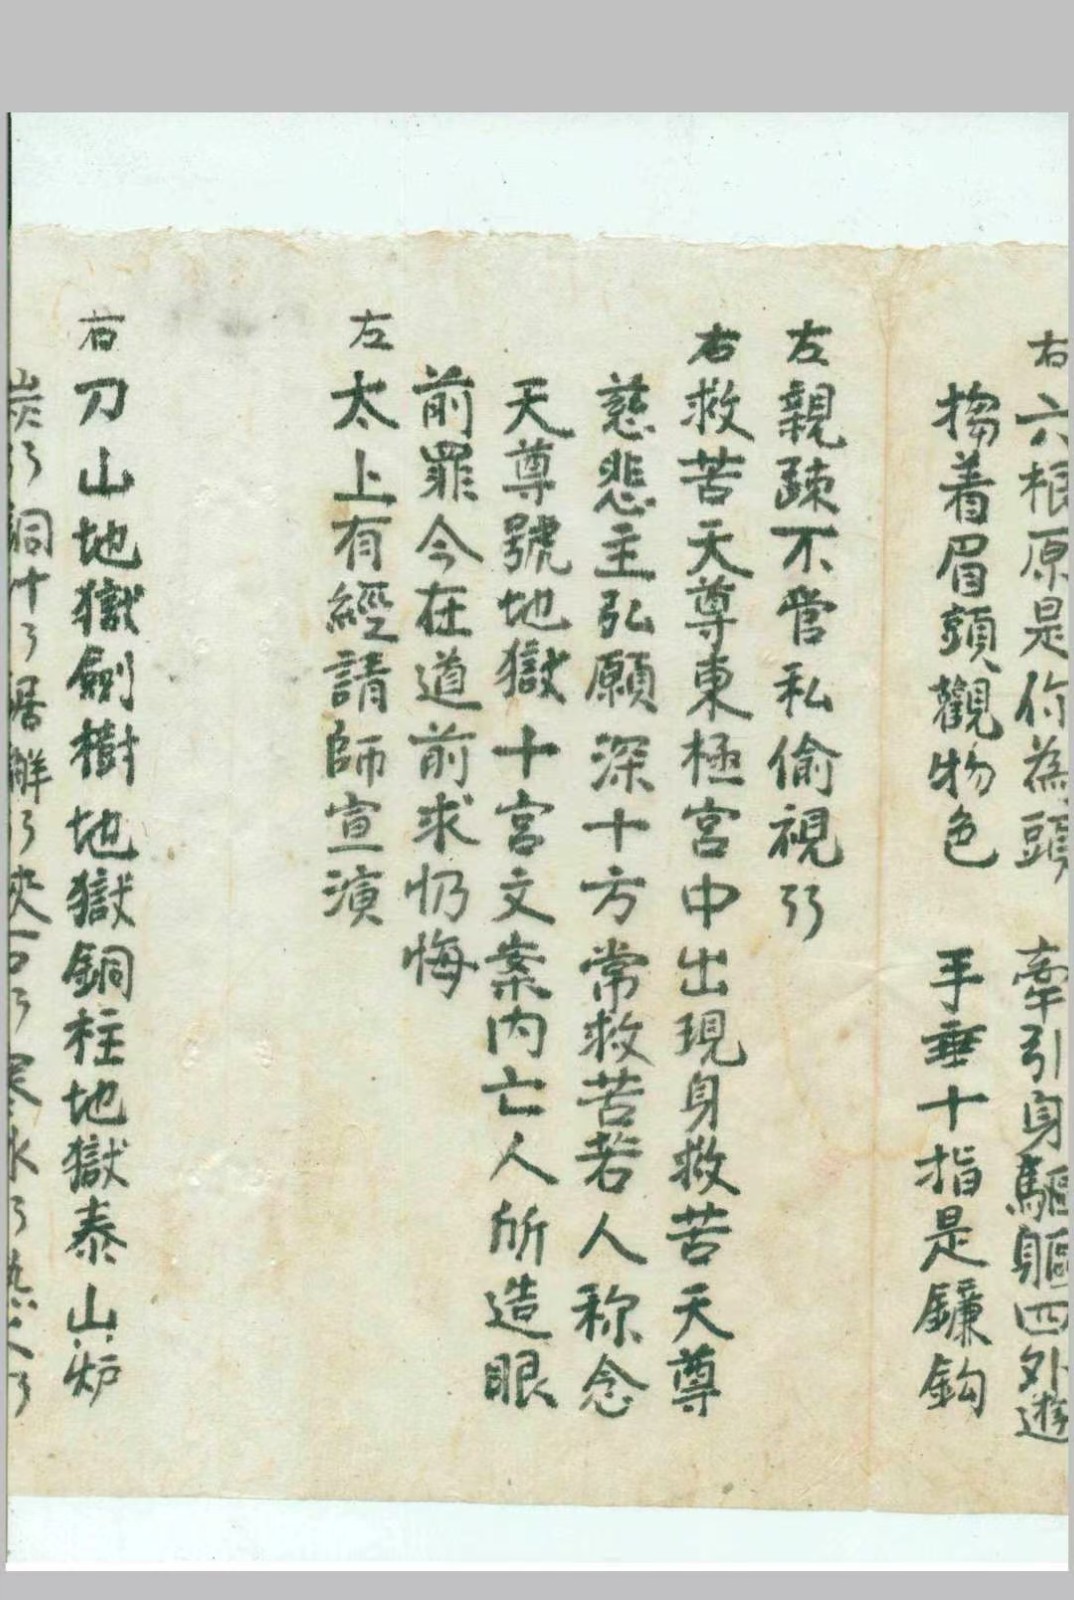 右六根原是你為頭　牽引身驅軀四外遊
搊着眉頭觀物色　手垂十指是鐮鈎
左親疎不管私偷視
右救苦天尊東極宮中出現身救苦天尊
慈悲主弘願深十方常救苦若人称念
天尊號地獄十宮文案内亡人所造眼
前罪今在道前求忏悔
左太上有經請師宣演
右刀山地獄劍樹地獄銅柱地獄泰山炉
炭 銅 鋸解 夾石 寒冰